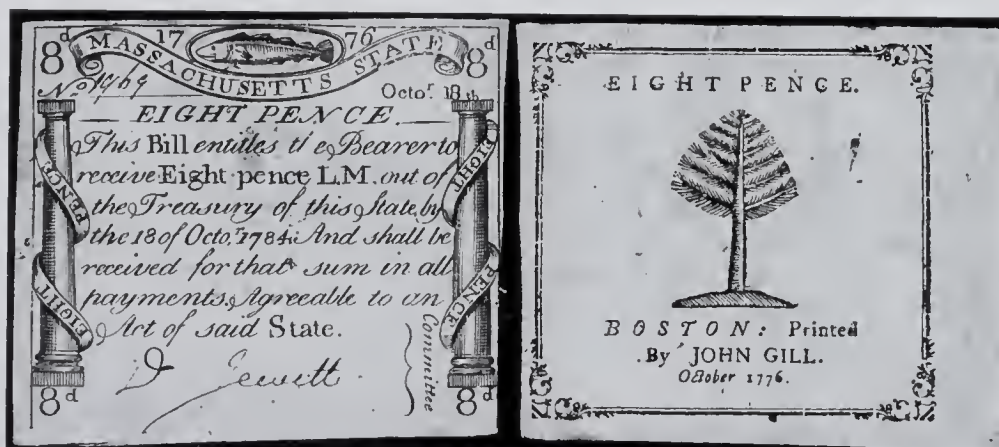 8d 17 76 8d
MASSACHUSETTS STATE
No
Octor. 18th
EIGHT PENCE.
This Bill entitles the Bearer to
receive Eight pence L.M. out of
the Treasury of this State by
the 18 of Octor. 1784. And shall be
received for that sum in all
payments Agreeable to an
Act of said State.
EIGHT PENCE
EIGHT PENCE
Committee
8d 8d
EIGHT PENCE.
BOSTON: Printed
By JOHN GILL.
October 1776.